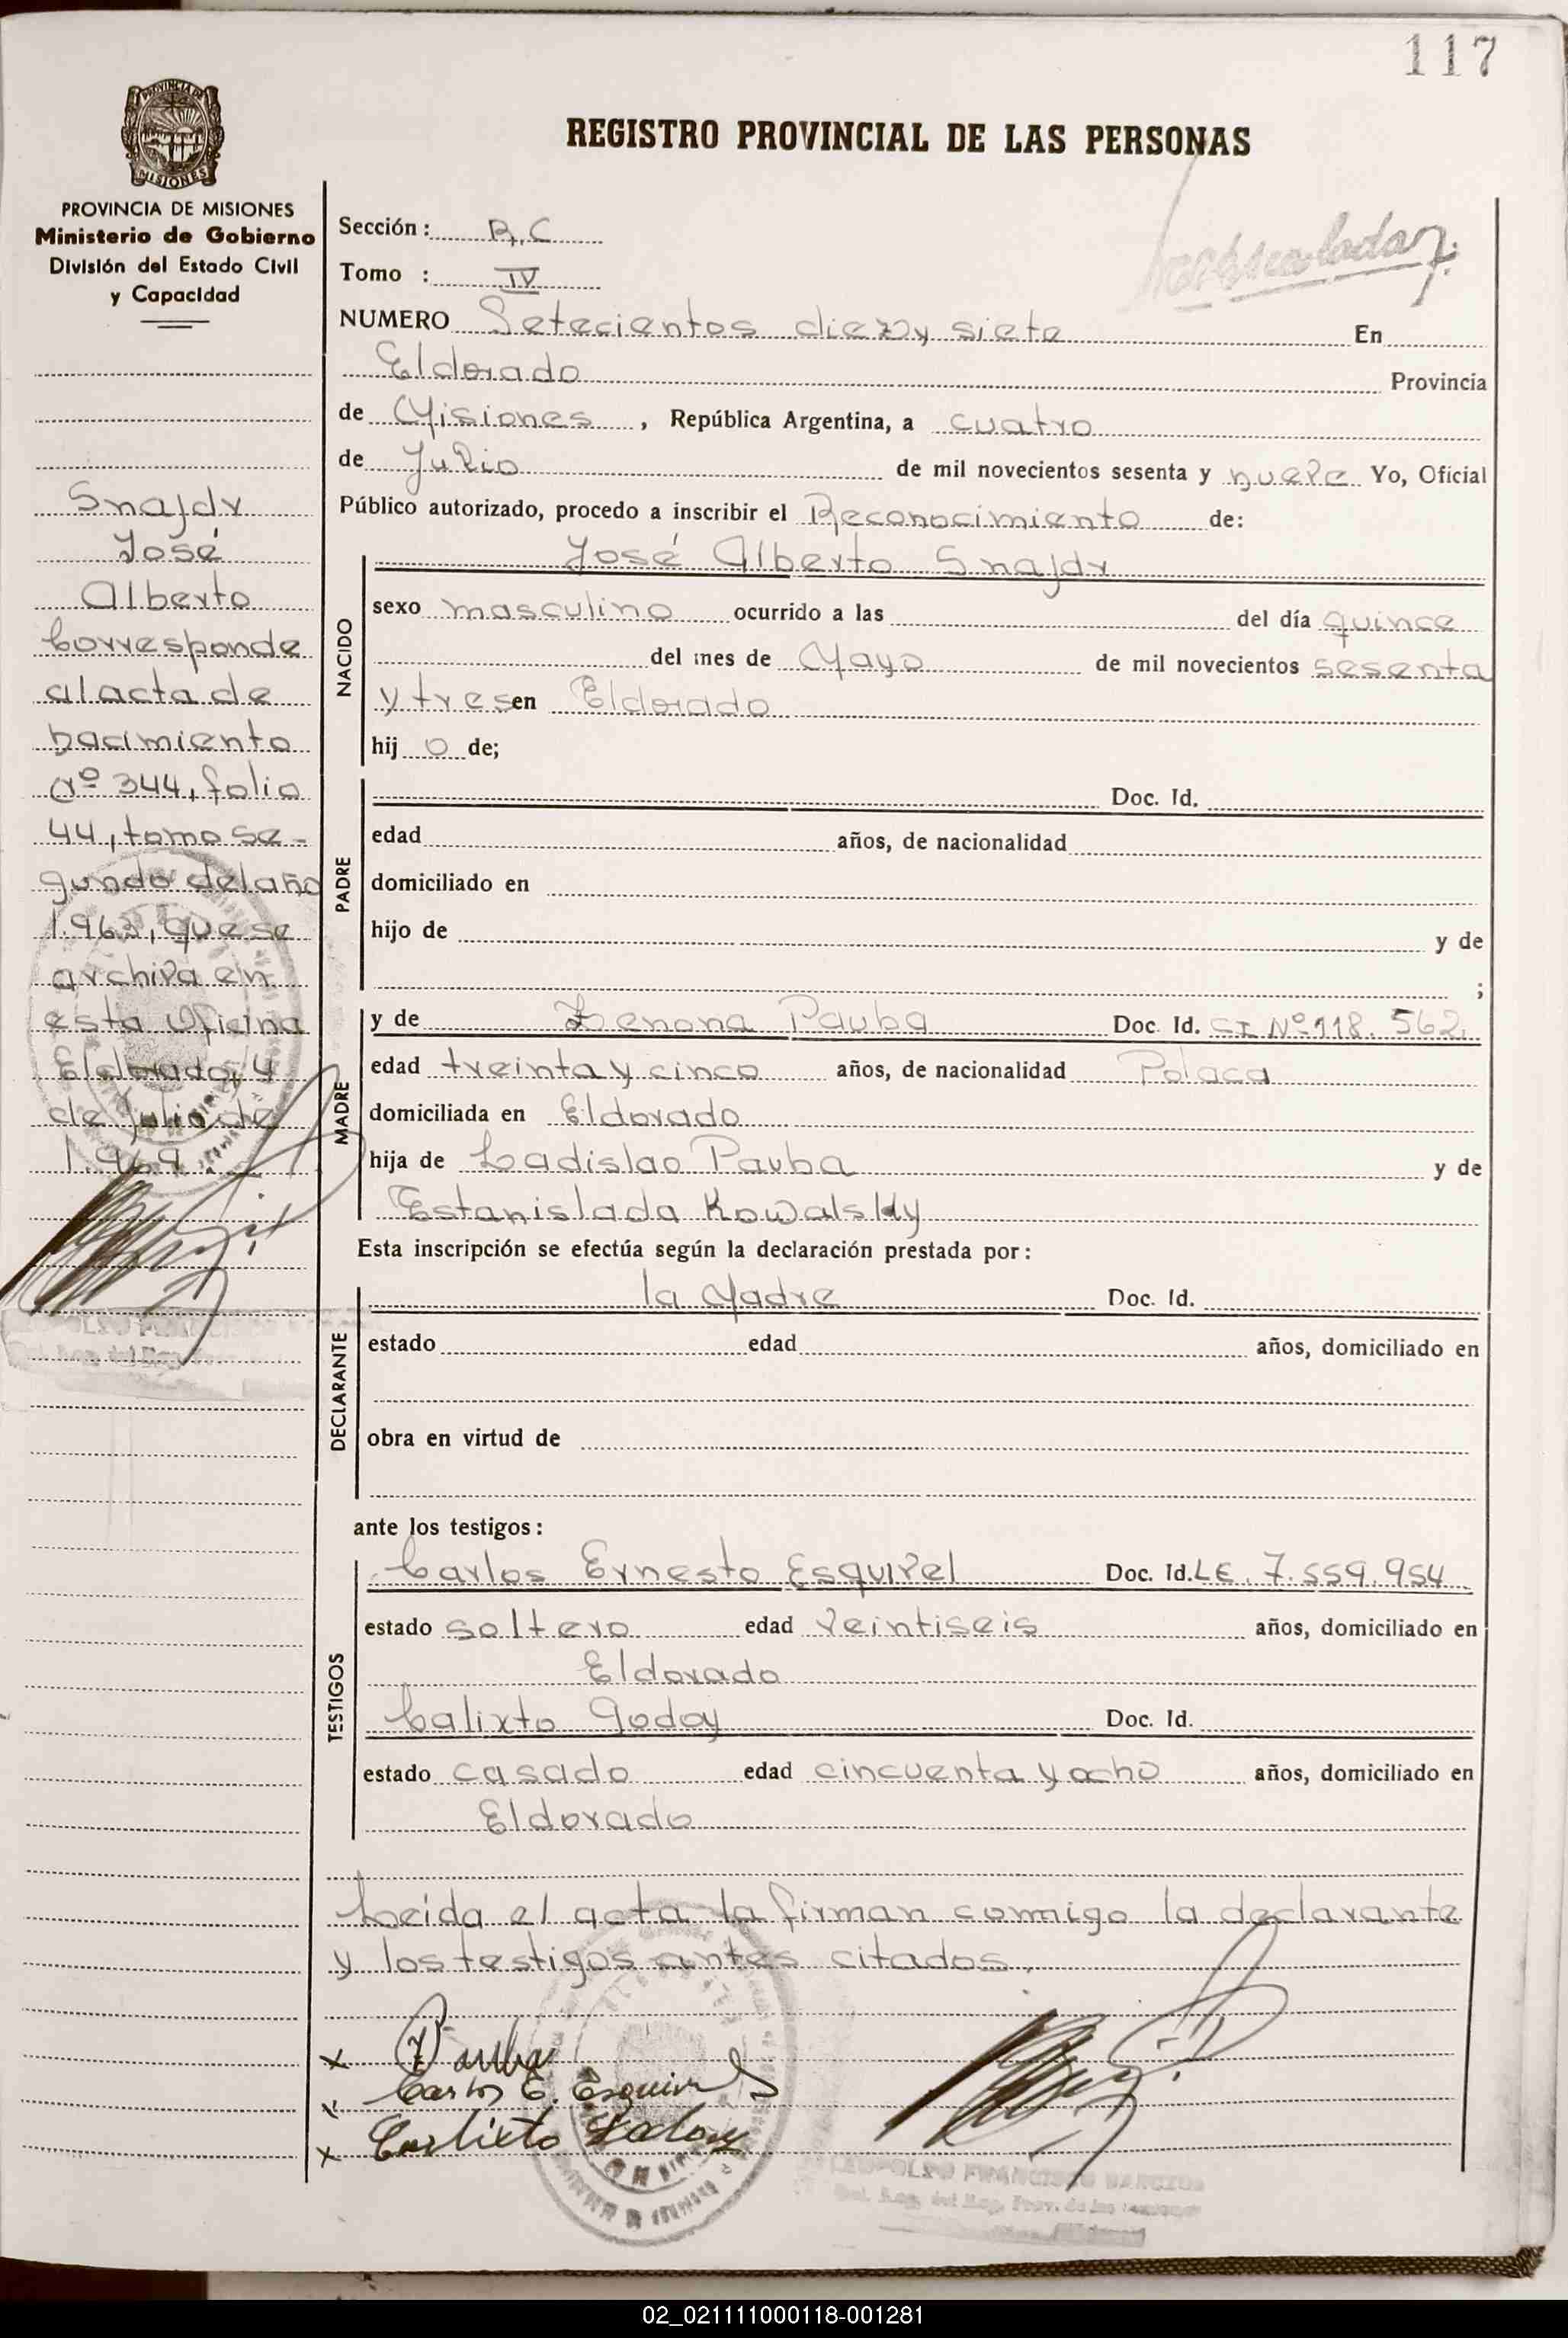 117
REGISTRO PROVINCIAL DE LAS PERSONAS
PROVINCIA DE MISIONES
Ministerio de Gobierno
División del Estado Civil
y Capacidad
Snajdr
José
Alberto
Corresponde
al acta de
nacimiento
Nº 344, folio
44, tomo se-
gundo del año
1.963, que se
archiva en
esta Oficina
Eldorado, 4
de Julio de
1.969.
Sección: R.C
Tomo : IV
NUMERO Setecientos diez y siete En
Eldorado Provincia
de Misiones, República Argentina, a cuatro
de Julio de mil novecientos sesenta y nueve Yo, Oficial
Público autorizado, procedo a inscribir el Reconocimiento de:
NACIDO
José Alberto Snajdr
sexo masculino ocurrido a las del día quince
del mes de Mayo de mil novecientos sesenta
y tres en Eldorado
hij o de;
PADRE
Doc. Id.
edad años, de nacionalidad
domiciliado en
hijo de y de
;
MADRE
y de Zenona Pauba Doc. Id. CI Nº 118.562.
edad treinta y cinco años, de nacionalidad Polaca
domiciliada en Eldorado
hija de Ladislao Pauba y de
Estanislada Kowalsky
Esta inscripción se efectúa según la declaración prestada por:
DECLARANTE
la Madre Doc. Id.
estado edad años, domiciliado en
obra en virtud de
ante los testigos:
TESTIGOS
Carlos Ernesto Esquivel Doc. Id. LE. 7.559.954
estado soltero edad veintiseis años, domiciliado en
Eldorado
Calixto Godoy Doc. Id.
estado casado edad cincuenta y ocho años, domiciliado en
Eldorado
Leida el acta la firman conmigo la declarante
y los testigos antes citados.
x Z Pauba
x Carlos E. Esquivel
x Calixto Godoy
LEOPOLDO FRANCISCO
02_021111000118-001281